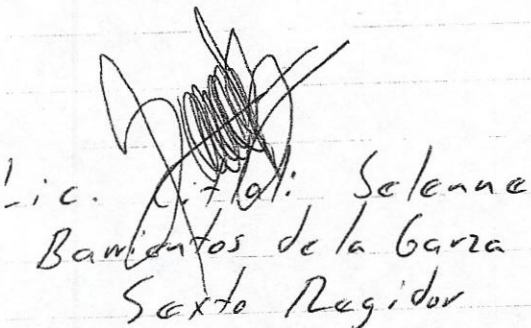 Lic. Citlali Selenne
Barrientos de la Garza
Sexto Regidor